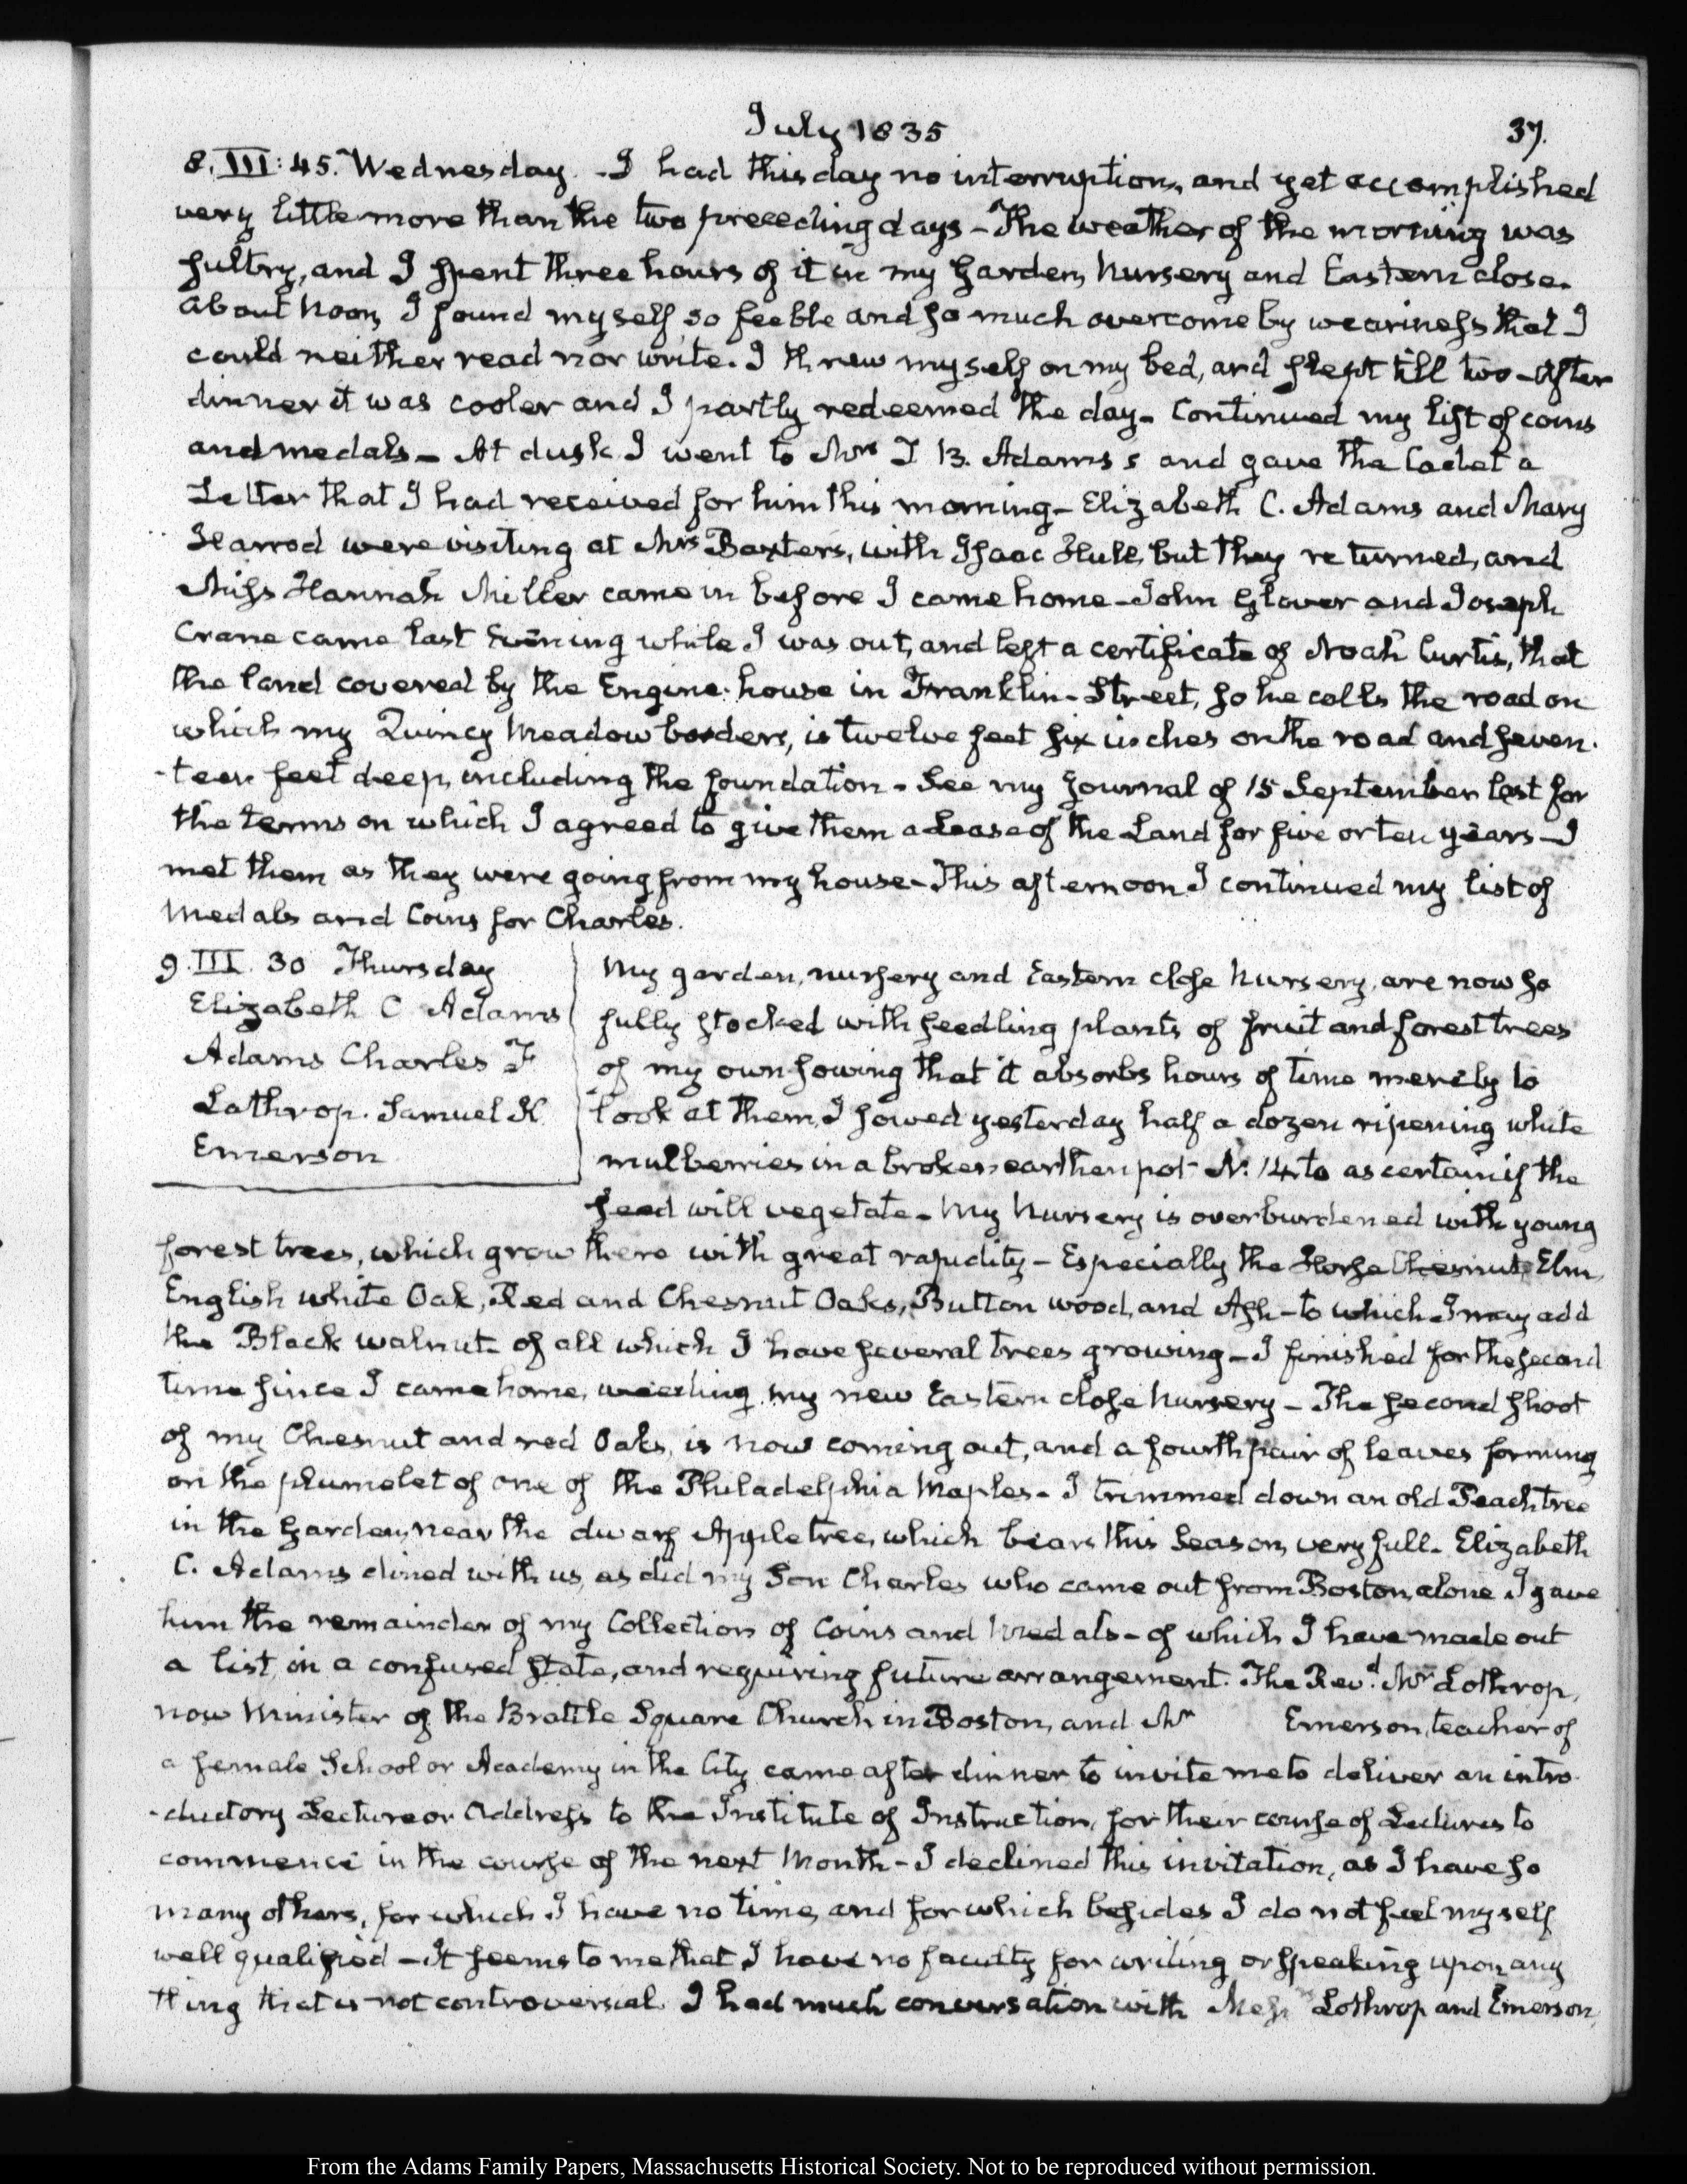 July 1835
37.
8. III: 45. Wednesday. - I had this day no interruption, and yet accomplished
very little more than the two preceding days - The weather of the morning was
sultry, and I spent three hours of it in my garden, Nursery and Eastern close.
about Noon, I found myself so feeble and so much overcome by weariness that I
could neither read nor write. I threw myself on my bed, and slept till two - After
dinner it was cooler and I partly redeemed the day - Continued my list of coins
and medals - At dusk I went to Mrs T B. Adams s and gave the Cadet a
Letter that I had received for him this morning - Elizabeth C. Adams and Mary
Harrod were visiting at Mrs Baxters, with Isaac Hull, but they returned, and
Miss Hannah Miller came in before I came home - John Glover and Joseph
Crane came last Evening while I was out, and left a certificate of Noah Curtis, that
the land covered by the Engine-house in Franklin-Street, so he calls the road on
which my Quincy Meadow borders, is twelve feet six inches on the road and seven-
-teen feet deep, including the foundation - See my Journal of 15 September last for
the terms on which I agreed to give them a Lease of the Land for five or ten years - I
met them as they were going from my house - This afternoon I continued my list of
Medals and Coins for Charles.
9. III. 30 Thursday
Elizabeth C Adams
Adams Charles F
Lothrop. Samuel K
Emerson
My garden, nursery and Eastern close Nursery, are now so
fully stocked with seedling plants of fruit and forest trees
of my own sowing that it absorbs hours of time merely to
look at them, I sowed yesterday half a dozen ripening white
mulberries in a broken earthen pot N. 14 to ascertain if the
seed will vegetate - My Nursery is overburdened with young
forest trees, which grow there with great rapidity - Especially the Horse Chesnut, Elm,
English white Oak, Red and Chesnut Oaks, Button wood, and Ash - to which I may add
the Black walnut - of all which I have several trees growing - I finished for the second
time since I came home, weeding my new Eastern close Nursery - The second shoot
of my Chesnut and red Oaks, is now coming out, and a fourth pair of leaves forming
on the plumelet of one of the Philadelphia Maples - I trimmed down an old Peach tree
in the Garden, near the dwarf Apple tree, which bears this Season, very full - Elizabeth
C. Adams dined with us, as did my Son Charles who came out from Boston, alone I gave
him the remainder of my Collection of Coins and Medals - of which I have made out
a list, in a confused state, and requiring future arrangement. The Revd. Mr Lothrop,
now Minister of the Brattle Square Church in Boston, and Mr Emerson, teacher of
a female School or Academy in the City came after dinner to invite me to deliver an intro-
-ductory Lecture or Address to the Institute of Instruction, for their course of Lectures to
commence in the course of the next Month - I declined this invitation, as I have so
many others, for which I have no time, and for which besides I do not feel myself
well qualified - It seems to me that I have no faculty for writing or speaking upon any
thing that is not controversial. I had much conversation with Messrs Lothrop and Emerson,
From the Adams Family Papers, Massachusetts Historical Society. Not to be reproduced without permission.